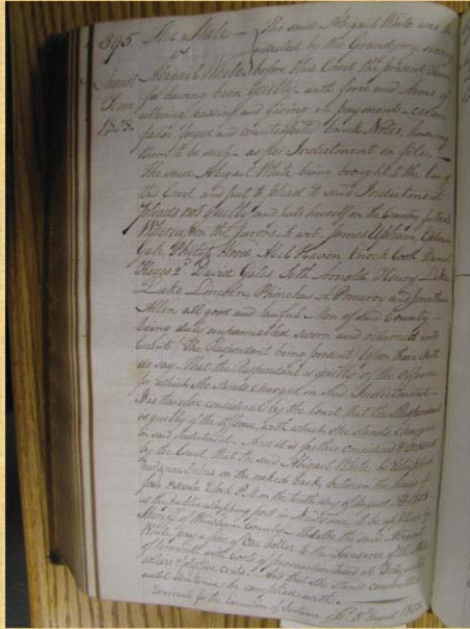 395. The State — The said Abigail White was
vs indicted by the Grand jury
August Abigail White before this Court the present Term
Term for having been Guilty with force and Arms of
1808. uttering passing and giving in payment certain
false forged and counterfeited Bank Notes, knowing
them to be such as per Indictment on files —
The said Abigail White being brought to the Bar of
this Court, and put to plead to said Indictment
pleads not guilty and puts herself on the Country for trial
Whereupon the Jurors to wit, James Upham, Ephraim
Gale Philip Hood Abel Haven Enoch Cook Daniel
Keyes 2d David Gates Seth Arnold Henry
Luke Lincoln, Phinehas Pomeroy and Jonathan
Allen all good and lawful Men of said County —
being duly empannelled sworn and returned into
Court the Respondent being present Upon their Oath
do say — That the Respondent is guilty of the Offence
for which she stands charged in said Indictment —
It is therefore considered by the Court that the Respondent
is guilty of the Offence with which she stands charged
in said Indictment — And it is further considered &
by the Court, that the said Abigail White be Whipped
Stripes on the naked back, between the hours of
four & seven Clock P.M. on the tenth day of August AD 1808
at the public whipping post in Newfane, to be applied by
Sheriff of Windham County — that the said Abigail
White pay a fine of One dollar to the Treasurer of the State
of Vermont with Costs of prosecution taxed at
dollars & cents — And that she stand committed
until Sentence be complied with —
Warrant for the Execution of Sentence August 1808